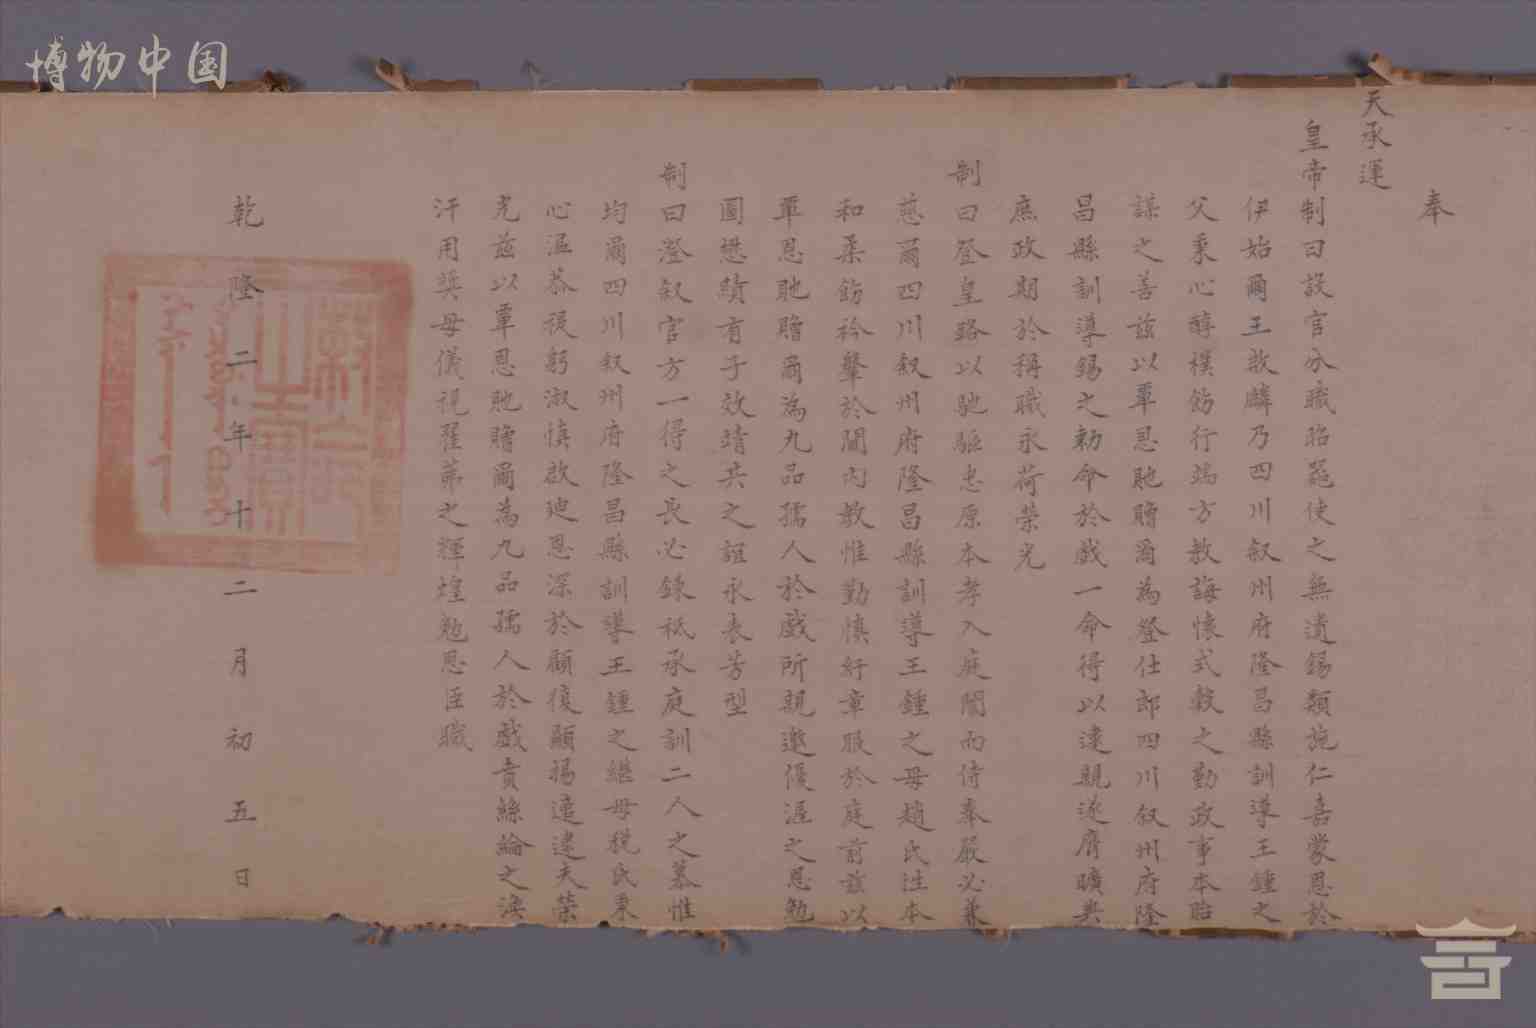 博物中国
奉
天承運
皇帝制曰設官分職昭器使之無遺錫類施仁嘉蒙恩於
伊始爾王敬麟乃四川叙州府隆昌縣訓導王鍾之
父秉心醇樸飭行端方教誨懷式穀之勤政事本貽
謀之善茲以覃恩貤贈爾為登仕郎四川叙州府隆
昌縣訓導錫之勅命於戲一命得以逮親遂膺曠典
庶政期於稱職永荷榮光
制曰登皇路以馳驅忠原本孝入庭闈而侍奉嚴必兼
慈爾四川叙州府隆昌縣訓導王鍾之母趙氏性本
和柔飭衿鞶於閫内教惟勤慎紆章服於庭前茲以
覃恩貤贈爾為九品孺人於戲所親邀優渥之恩勉
圖懋績有子效靖共之誼永表芳型
制曰澄叙官方一得之長必錄秪承庭訓二人之慕惟
均爾四川叙州府隆昌縣訓導王鍾之繼母税氏秉
心温恭禔躬淑慎啟迪恩深於顧復顯揚適逮夫榮
光茲以覃恩貤贈爾為九品孺人於戲賁絲綸之渙
汗用奬母儀視翟茀之輝煌勉思臣職
乾隆二年十二月初五日